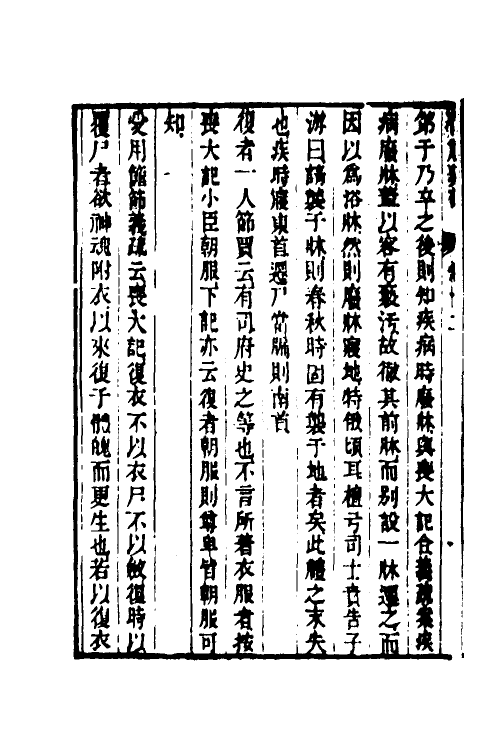 第于乃卒之後則知疾病時廢牀與喪大記合義疏案疾
病廢牀蓋以容有褻汚故徹其前牀而别設一牀遷之而
因以爲浴牀然則廢牀寢地特俄頃耳檀弓司士賁告子
游曰請襲于牀則春秋時固有襲于地者矣此禮之末失
也疾時寢東首遷尸當牖則南首
復者一人節賈云有司府史之等也不言所著衣服者按
喪大記小臣朝服下記亦云復者朝服則尊卑皆朝服可
知
受用篚節義疏云喪大記復衣不以衣尸不以斂復時以
覆尸者欲神魂附衣以來復于體魄而更生也若以復衣